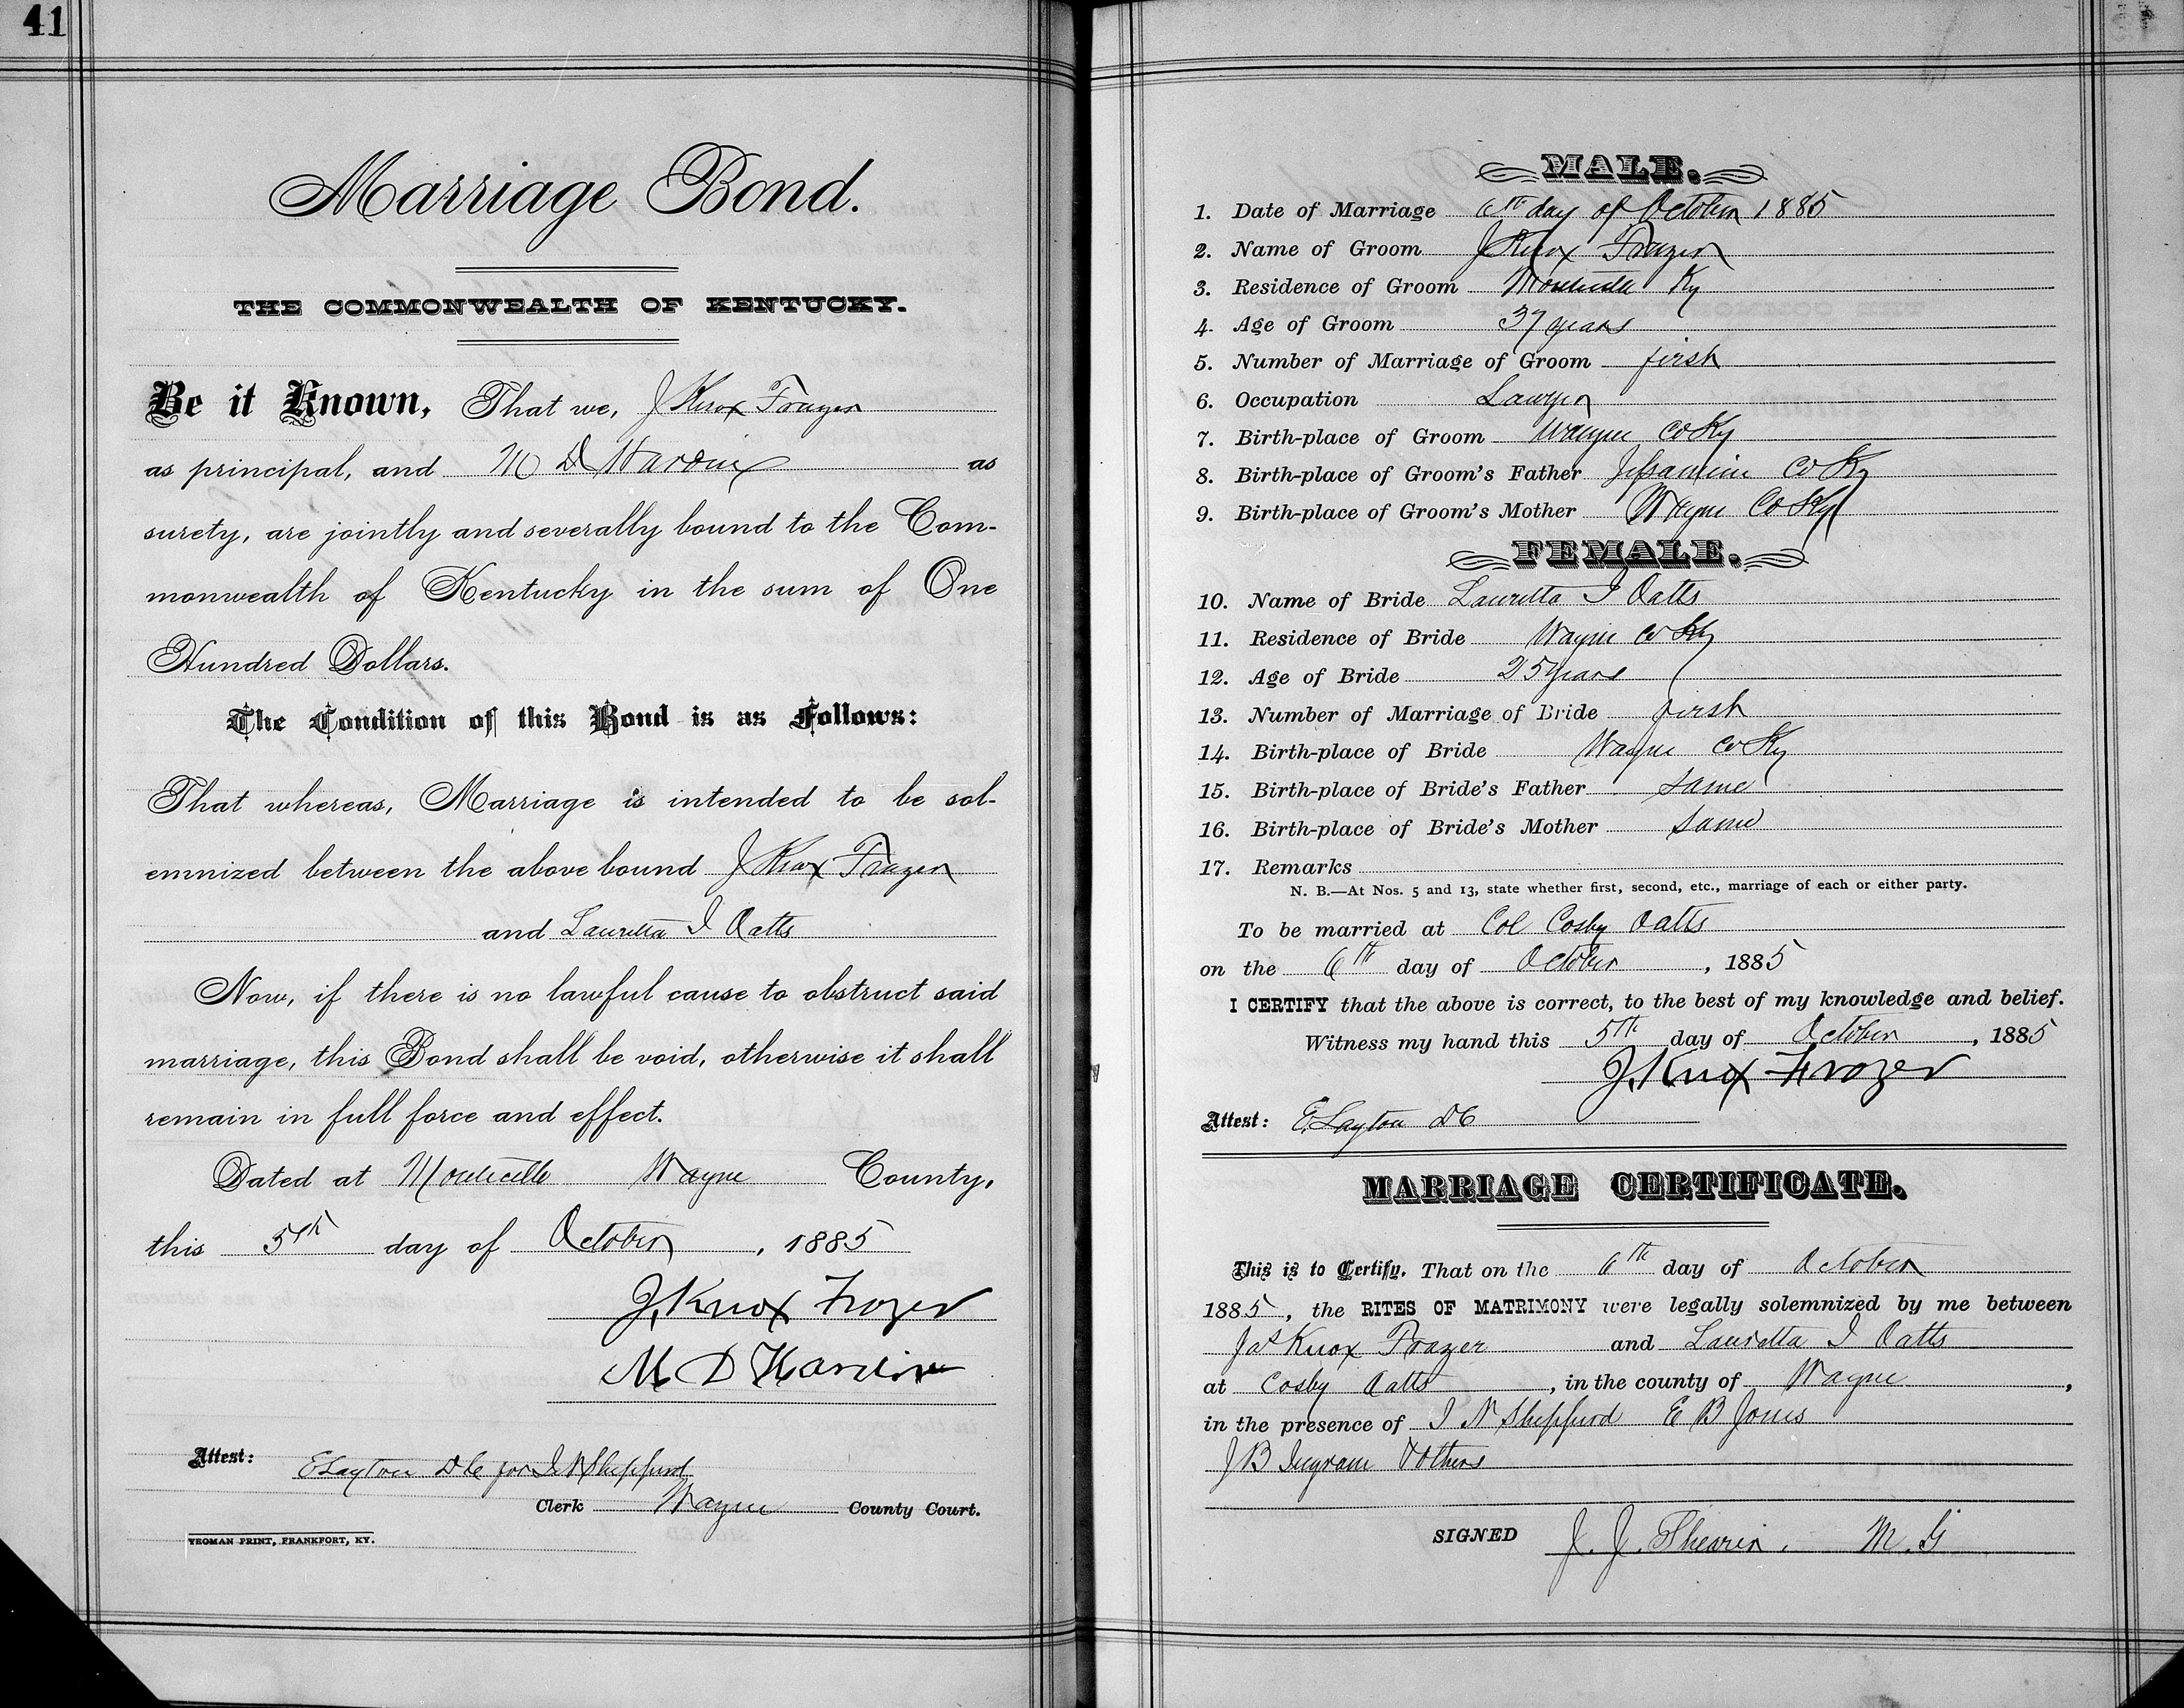 41
Marriage Bond.
THE COMMONWEALTH OF KENTUCKY.
Be it Known, That we, J Knox Frazer
as principal, and M D Hardin as
surety, are jointly and severally bound to the Com-
monwealth of Kentucky in the sum of One
Hundred Dollars.
The Condition of this Bond is as Follows:
That whereas, Marriage is intended to be sol-
emnized between the above bound J Knox Frazer
and Lauretta I Oatts
Now, if there is no lawful cause to obstruct said
marriage, this Bond shall be void, otherwise it shall
remain in full force and effect.
Dated at Monticello Wayne County,
this 5th day of October, 1885
J. Knox Frazer
M D Hardin
Attest: E Layton DC for I N Shepperd
Clerk Wayne County Court.
YEOMAN PRINT, FRANKFORT, KY.
MALE.
1. Date of Marriage 6th day of October 1885
2. Name of Groom J Knox Frazer
3. Residence of Groom Monticello Ky
4. Age of Groom 37 years
5. Number of Marriage of Groom first
6. Occupation Lawyer
7. Birth-place of Groom Wayne Co Ky
8. Birth-place of Groom's Father Jessamine Co Ky
9. Birth-place of Groom's Mother Wayne Co Ky
FEMALE.
10. Name of Bride Lauretta I Oatts
11. Residence of Bride Wayne Co Ky
12. Age of Bride 25 years
13. Number of Marriage of Bride first
14. Birth-place of Bride Wayne Co Ky
15. Birth-place of Bride's Father same
16. Birth-place of Bride's Mother same
17. Remarks
N. B.—At Nos. 5 and 13, state whether first, second, etc., marriage of each or either party.
To be married at Col Cosby Oatts
on the 6th day of October, 1885
I CERTIFY that the above is correct, to the best of my knowledge and belief.
Witness my hand this 5th day of October, 1885
J. Knox Frazer
Attest: E. Layton DC
MARRIAGE CERTIFICATE.
This is to Certify, That on the 6th day of October
1885, the RITES OF MATRIMONY were legally solemnized by me between
Jas Knox Frazer and Lauretta I Oatts
at Cosby Oatts, in the county of Wayne,
in the presence of I N Shepperd E B Jones
J B Ingram & Others
SIGNED J. J. M. G